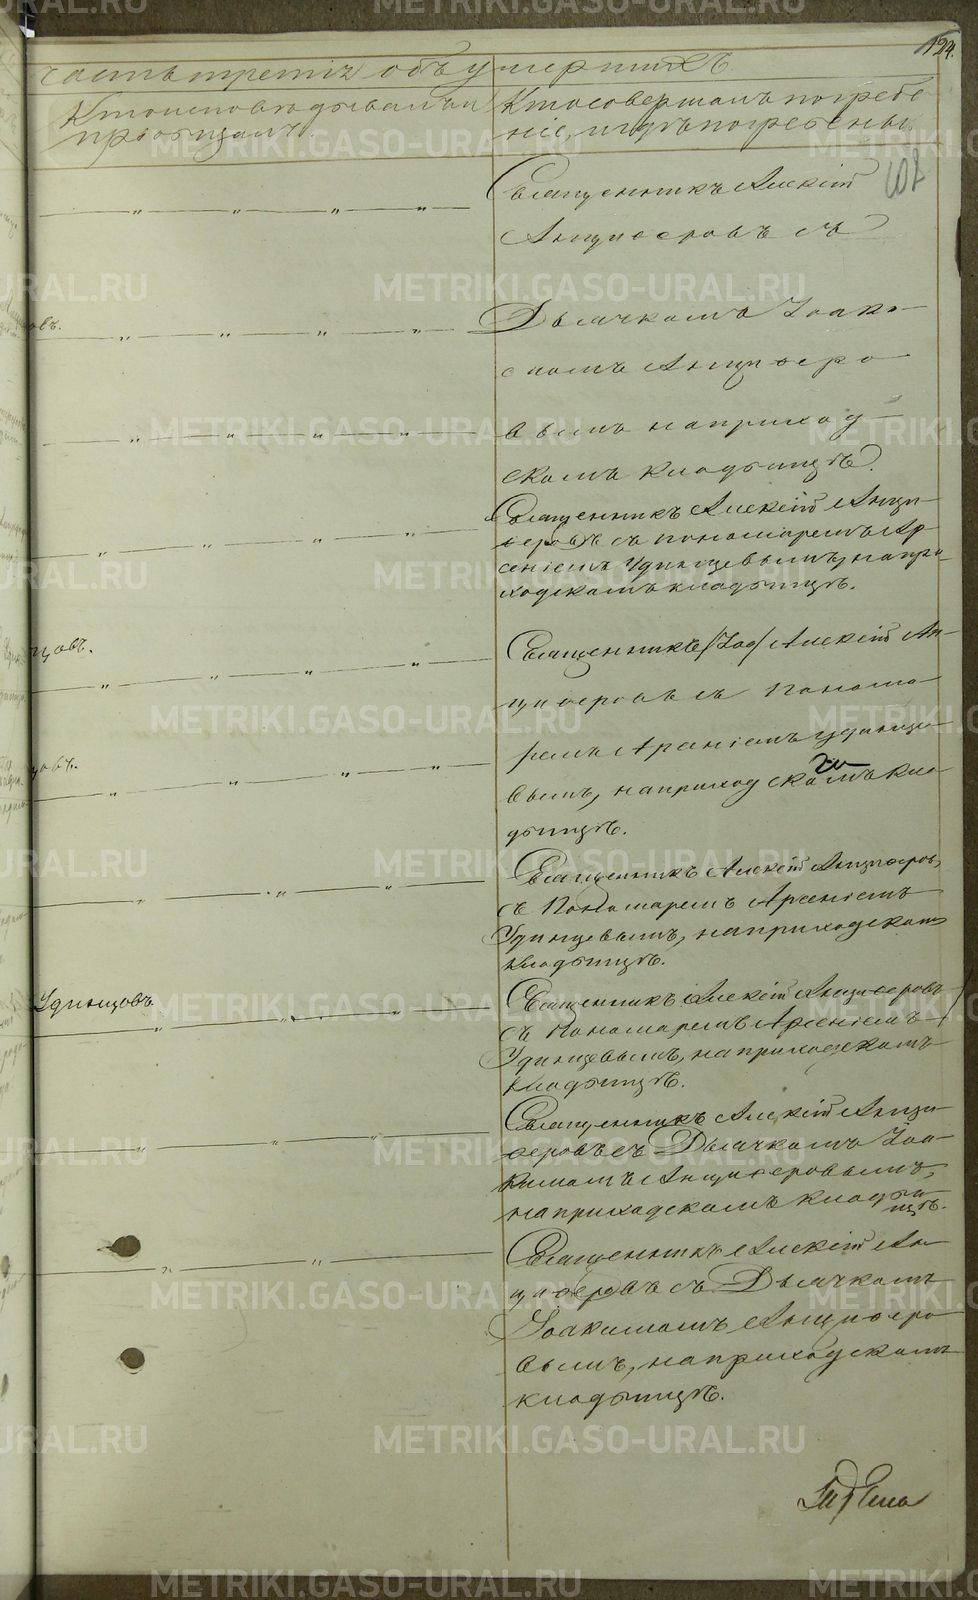 124.
часть третія объ умершихъ
Кто исповѣдывалъ и
пріобщалъ.
Кто совершалъ погребе
ніе, и гдѣ погребены.
Священникъ Алексій
Анциферовъ съ
овъ.
Дьячкомъ Іоаки
момъ Анциферо
вымъ на приход
скомъ кладбищѣ.
Священникъ Алексій Анци
феровъ съ пономаремъ Ар
сеніемъ Удинцевымъ, на при
ходскомъ кладбищѣ.
цовъ.
Священникъ Алексій Ан
циферовъ съ Понома
ремъ Арсеніемъ Удинце
цовъ.
вымъ, на приходскомъ кла
дбищѣ.
Священникъ Алексій Анциферовъ,
съ Пономаремъ Арсеніемъ
Удинцевымъ, на приходскомъ
кладбищѣ.
Удинцовъ.
Священникъ Алексій Анциферовъ
съ пономаремъ Арсеніемъ
Удинцевымъ, на приходскомъ
кладбищѣ.
Священникъ Алексій Анци
феровъ съ Дьячкомъ Іоа
кимомъ Анциферовымъ,
на приходскомъ кладби
щѣ.
Священникъ Алексій Ан
циферовъ съ Дьячкомъ
Іоакимомъ Анциферо
вымъ, на приходскомъ
кладбищѣ.
METRIKI.GASO-URAL.RU